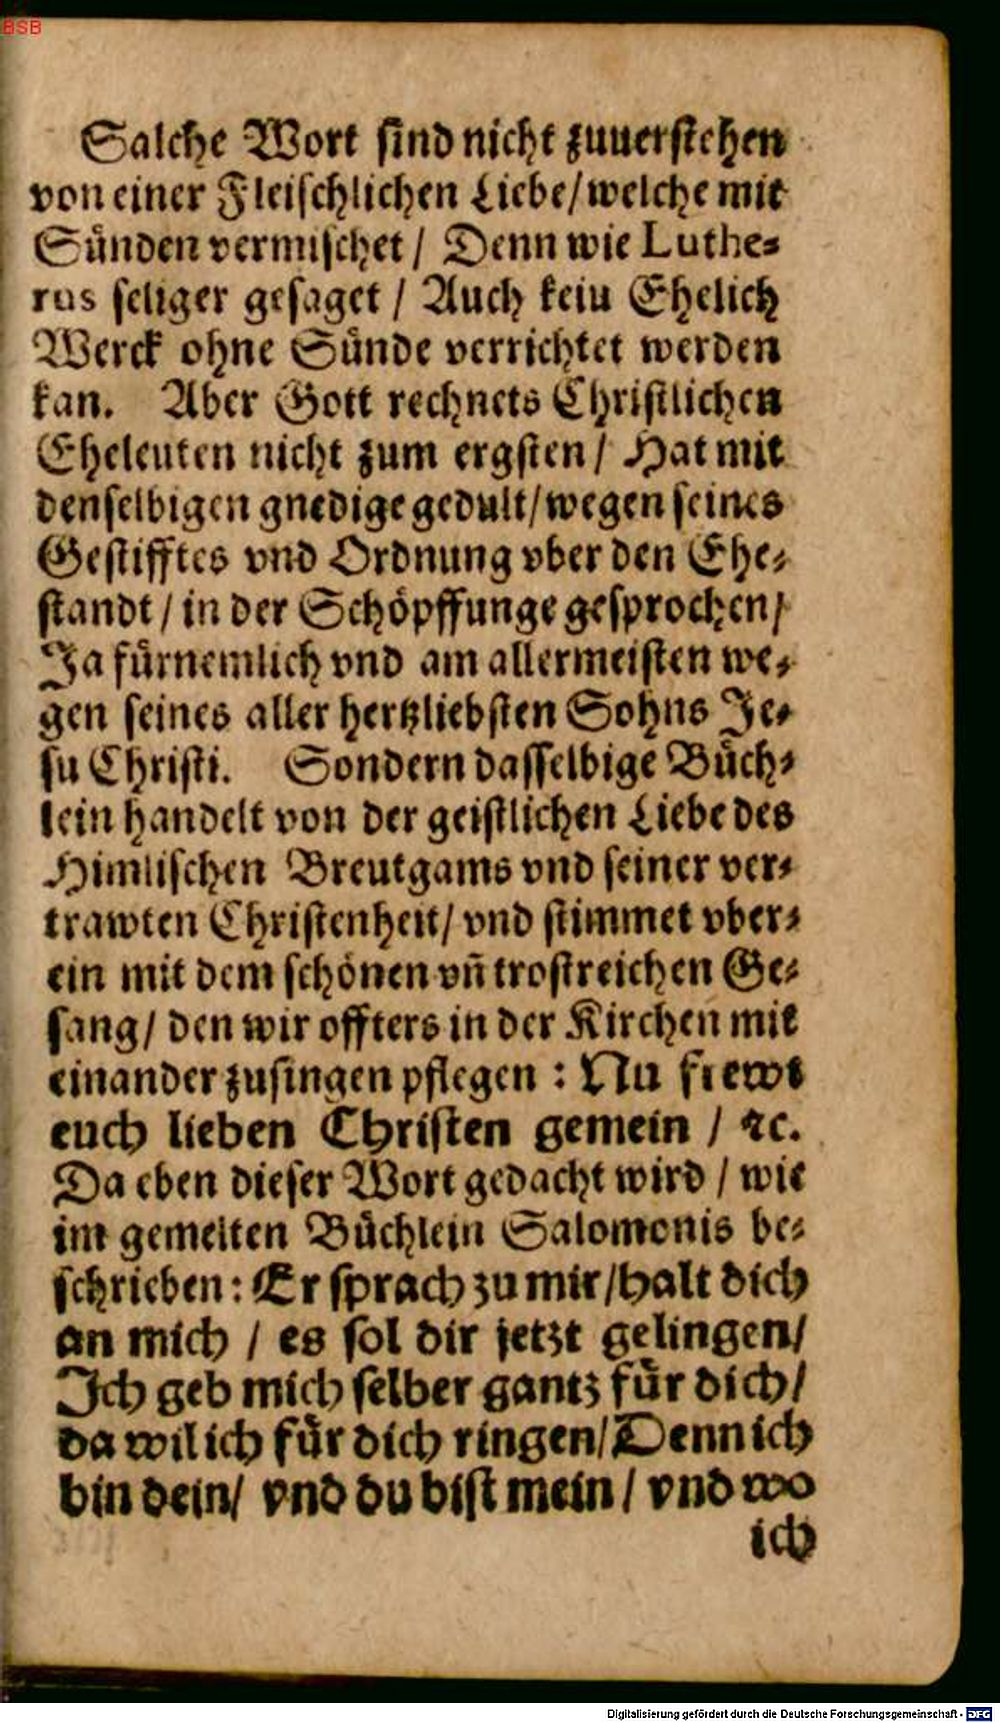 BSB
Salche Wort sind nicht zuuerstehen
von einer Fleischlichen Liebe/ welche mit
Sünden vermischet / Denn wie Luthe-
rus seliger gesaget / Auch keiu Ehelich
Werck ohne Sünde verrichtet werden
kan. Aber Gott rechnets Christlichen
Eheleuten nicht zum ergsten / Hat mit
denselbigen gnedige gedult/ wegen seines
Gestifftes vnd Ordnung vber den Ehe-
standt / in der Schöpffunge gesprochen/
Ja fürnemlich vnd am allermeisten we-
gen seines aller hertzliebsten Sohns Je-
su Christi. Sondern dasselbige Büch-
lein handelt von der geistlichen Liebe des
Himlischen Breutgams vnd seiner ver-
trawten Christenheit/ vnd stimmet vber-
ein mit dem schönen vñ trostreichen Ge-
sang/ den wir offters in der Kirchen mit
einander zusingen pflegen : Nu frewt
euch lieben Christen gemein / ꝛc.
Da eben dieser Wort gedacht wird / wie
im gemelten Büchlein Salomonis be-
schrieben: Er sprach zu mir/ halt dich
an mich / es sol dir jetzt gelingen/
Ich geb mich selber gantz für dich/
da wil ich für dich ringen/ Denn ich
bin dein/ vnd du bist mein / vnd wo
ich
Digitalisierung gefördert durch die Deutsche Forschungsgemeinschaft - DFG